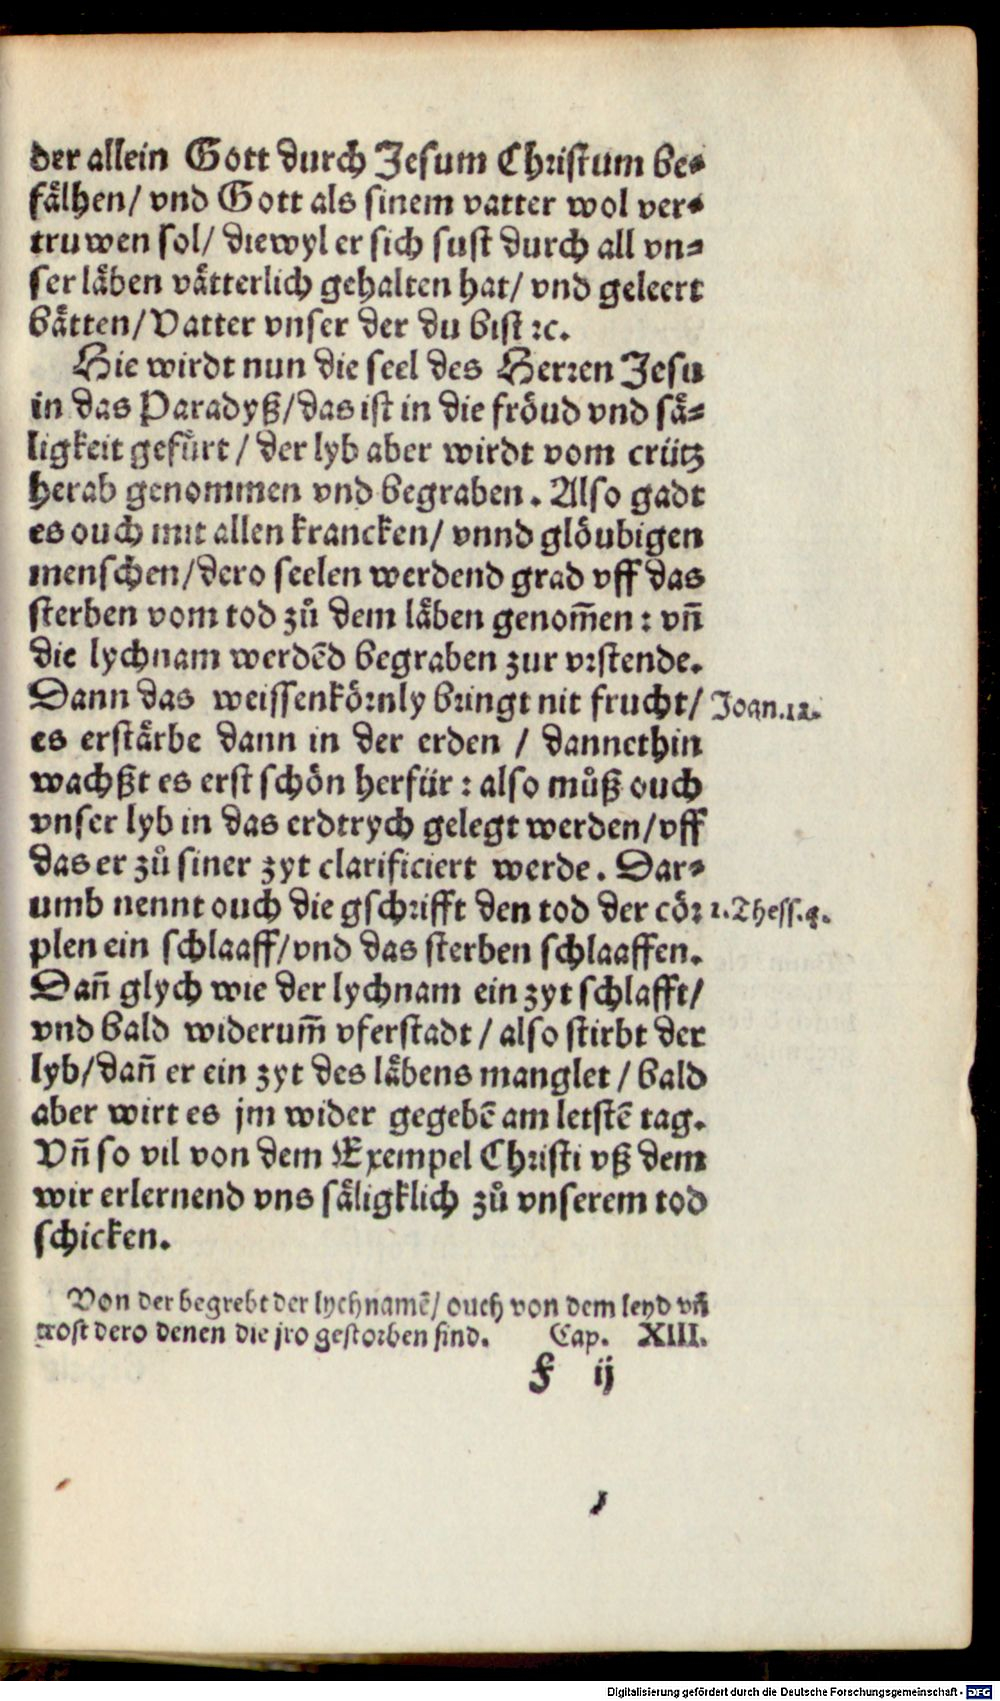 der allein Gott durch Jesum Christum be⸗
fålhen/ vnd Gott als sinem vatter wol ver⸗
truwen sol/ diewyl er sich sust durch all vn⸗
ser låben våtterlich gehalten hat/ vnd geleert
båtten/ Vatter vnser der du bist ꝛc.
Hie wirdt nun die seel des Herꝛen Jesu
in das Paradyß/ das ist in die froͤud vnd så⸗
ligkeit gefuͤrt/ der lyb aber wirdt vom crütz
herab genommen vnd begraben. Also gadt
es ouch mit allen krancken/ vnnd gloͤubigen
menschen/ dero seelen werdend grad vff das
sterben vom tod zů dem låben genom̄en: vn̄
die lychnam werdēd begraben zur vꝛstende.
Dann das weissenkoͤꝛnly bꝛingt nit frucht/ Joan.12.
es erstårbe dann in der erden / dannethin
wachßt es erst schoͤn herfür: also můß ouch
vnser lyb in das erdtrych gelegt werden/ vff
das er zů siner zyt clarificiert werde. Dar⸗
umb nennt ouch die gschꝛifft den tod der coͤꝛ 1.Thess.4.
plen ein schlaaff/ vnd das sterben schlaaffen.
Dan̄ glych wie der lychnam ein zyt schlafft/
vnd bald widerum̄ vferstadt / also stirbt der
lyb/ dan̄ er ein zyt des låbens manglet / bald
aber wirt es jm wider gegebē am letstē tag.
Vn̄ so vil von dem Exempel Chꝛisti vß dem
wir erlernend vns såligklich zů vnserem tod
schicken.
Von der begrebt der lychnamē/ ouch von dem leyd vn̄
trost dero denen die jro gestoꝛben sind. Cap. XIII.
F ij
Digitalisierung gefördert durch die Deutsche Forschungsgemeinschaft - DFG